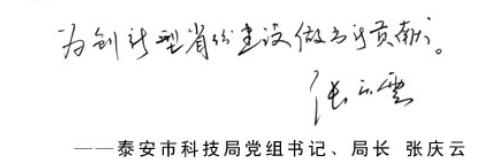 为创新型省份建设做出新贡献。
张庆云
——泰安市科技局党组书记、局长 张庆云